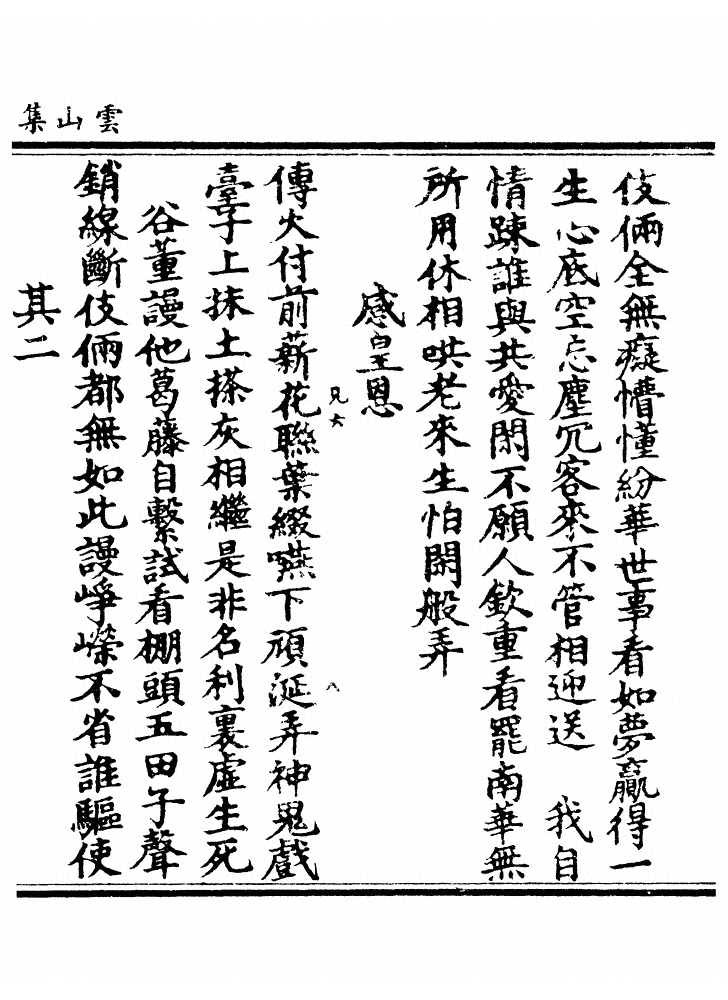 雲山集
伎倆全無癡懵懂紛華世事看如夢贏得一
生心底空忘塵冗客來不管相迎送　我自
情踈誰與共愛閑不願人欽重看罷南華無
所用休相哄老來生怕閑般弄
感皇恩
兄六
八
傳火付前薪花聯葉綴嚥下頑涎弄神鬼戲
臺子上抹土搽灰相繼是非名利裏虛生死
谷董謾他葛藤自繫試看棚頭五田子聲
銷線斷伎倆都無如此謾崢嶸不省誰驅使
其二